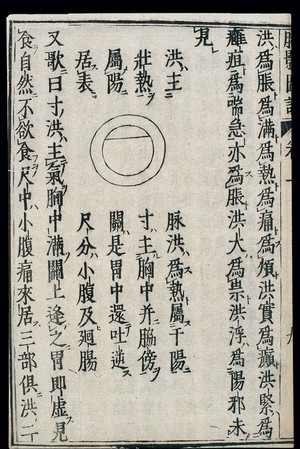 洪為脹為滿為熱為痛為煩洪實為癲洪緊為
癰疽為喘急亦為脹洪大為祟洪浮為陽邪未
見
洪主
壯熱
屬陽
居表
脉洪為熱屬于陽
寸主胸中并脇傍
關是胃中還吐逆
尺分小腹及迴腸
又歌曰寸洪主氣胸中滿關上逢之胃即虛見
食自然不欲食尺中小腹痛來居三部俱洪二